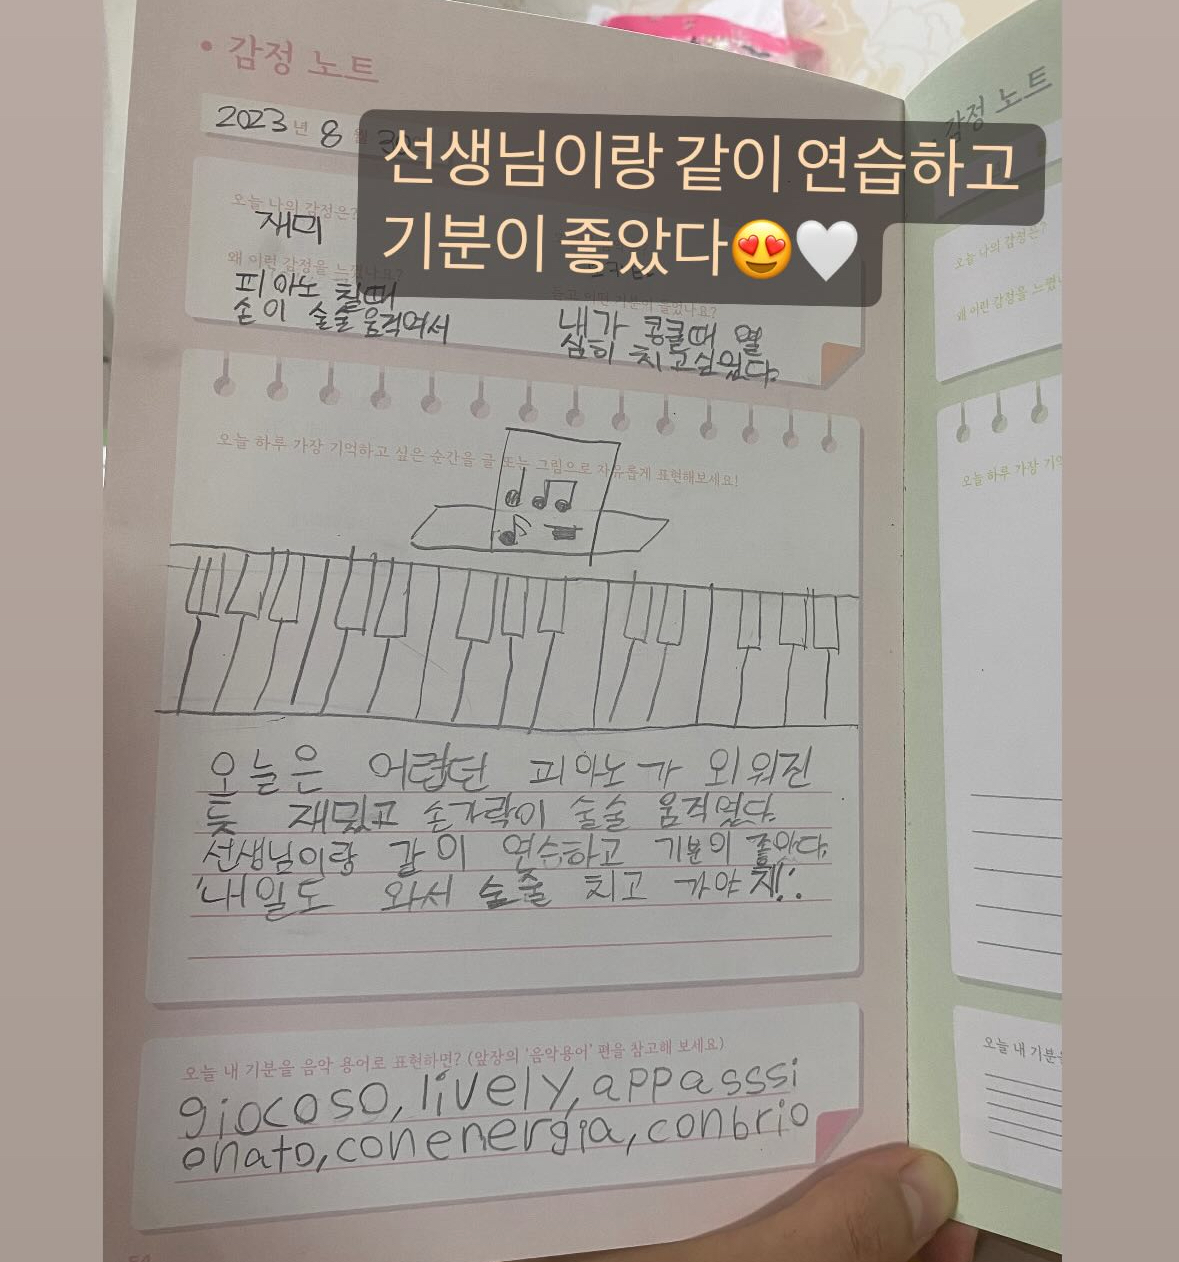 • 감정 노트
감정 노트
2023 년 8 월
선생님이랑 같이 연습하고
기분이 좋았다😍🤍
오늘 나의 감정은?
재미
왜 이런 감정을 느꼈나요?
피아노 칠때
손이 술술 움직여서
내가 콩쿨때 열
심히 치고싶었다.
오늘 나의 감정은?
왜 이런 감정을 느꼈
오늘 하루 가장 기억하고 싶은 순간을 글 또는 그림으로 자유롭게 표현해보세요!
오늘 하루 가장 기억
오늘은 어렵던 피아노가 외워진
듯 재밌고 손가락이 술술 움직였다.
선생님이랑 같이 연습하고 기분이 좋았다.
내일도 와서 술술 치고 가야지!
오늘 내 기분을 음악 용어로 표현하면? (앞장의 '음악용어' 편을 참고해 보세요)
giocoso, lively, appasssi
onato, conenergia, conbrio
오늘 내 기분